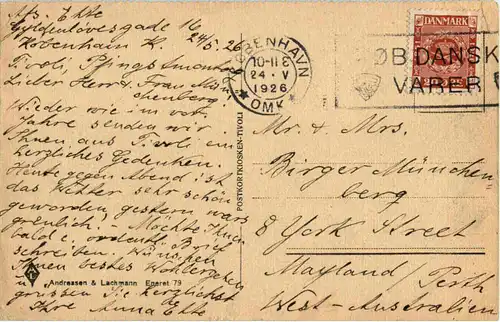 Afs. Ehte
Gyldenlövesgade 16
København K. 24/5. 26
Tivoli, Pfingstmontag
Lieber Herr u. Frau Mün-
chenberg!
Wieder wie im vor.
Jahre senden wir
Ihnen aus Tivoli ein
herzliches Gedenken.
Heute gegen Abend ist
das Wetter sehr schön
geworden, gestern wars
greulich. - Möchte Ihnen
bald e. ordentl. Brief
schreiben. Wünschen
Ihnen bestes Wohlergehen
u. grüssen Sie herzlichst
Ihre Anna Ehte
Andreasen & Lachmann Eneret 79
POSTKORTKIOSKEN-TIVOLI
KØBENHAVN
10-11 E
24 - V
1926
OMK
DANMARK
KØB DANSKE
VARER
Mr. & Mrs.
Birger München
berg
8 York Street
Mayland / Perth
West-Australien